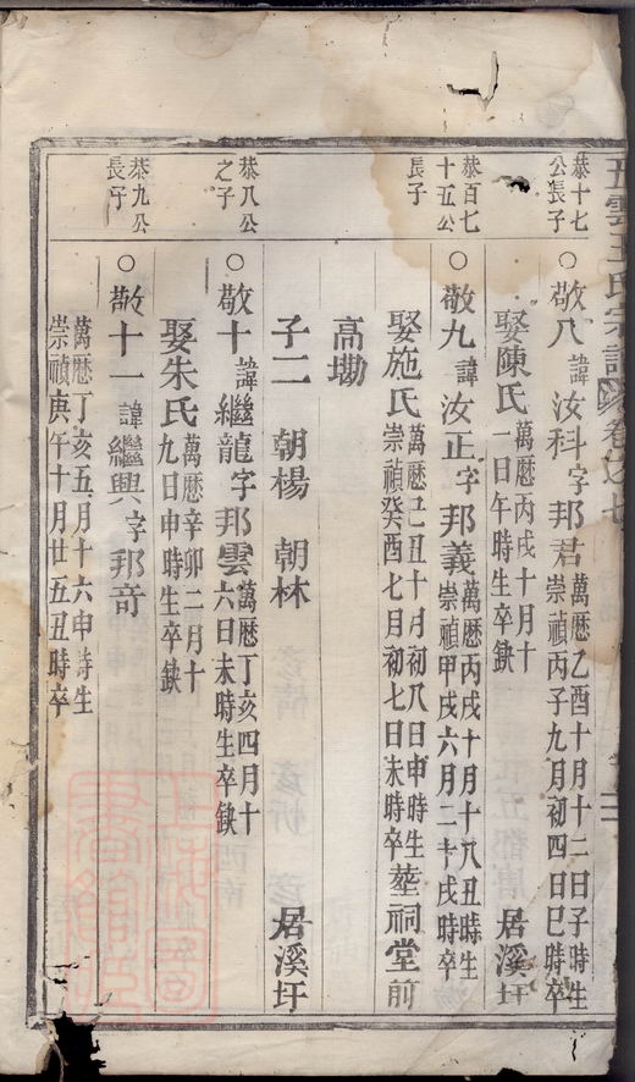 五雲王氏宗譜 卷之七
恭十七
公長子
○敬八 諱汝科字邦君 萬曆乙酉十月十二日子時生
崇禎丙子九月初四日巳時卒
娶陳氏 萬曆丙戌十月十
一日午時生卒缺 居溪圩
恭百七
十五公
長子
○敬九 諱汝正字邦義 萬曆丙戌十月十八丑時生
崇禎甲戌六月二十戌時卒
娶施氏 萬曆己丑十月初八日申時生
崇禎癸酉七月初七日未時卒 塟祠堂前
高塸
子二 朝楊 朝林 居溪圩
恭八公
之子
○敬十 諱繼龍字邦雲 萬曆丁亥四月十
六日未時生卒缺
娶朱氏 萬曆辛卯二月十
九日申時生卒缺
恭九公
長子
○敬十一 諱繼興字邦奇
萬曆丁亥五月十六申時生
崇禎庚午十月廿五丑時卒